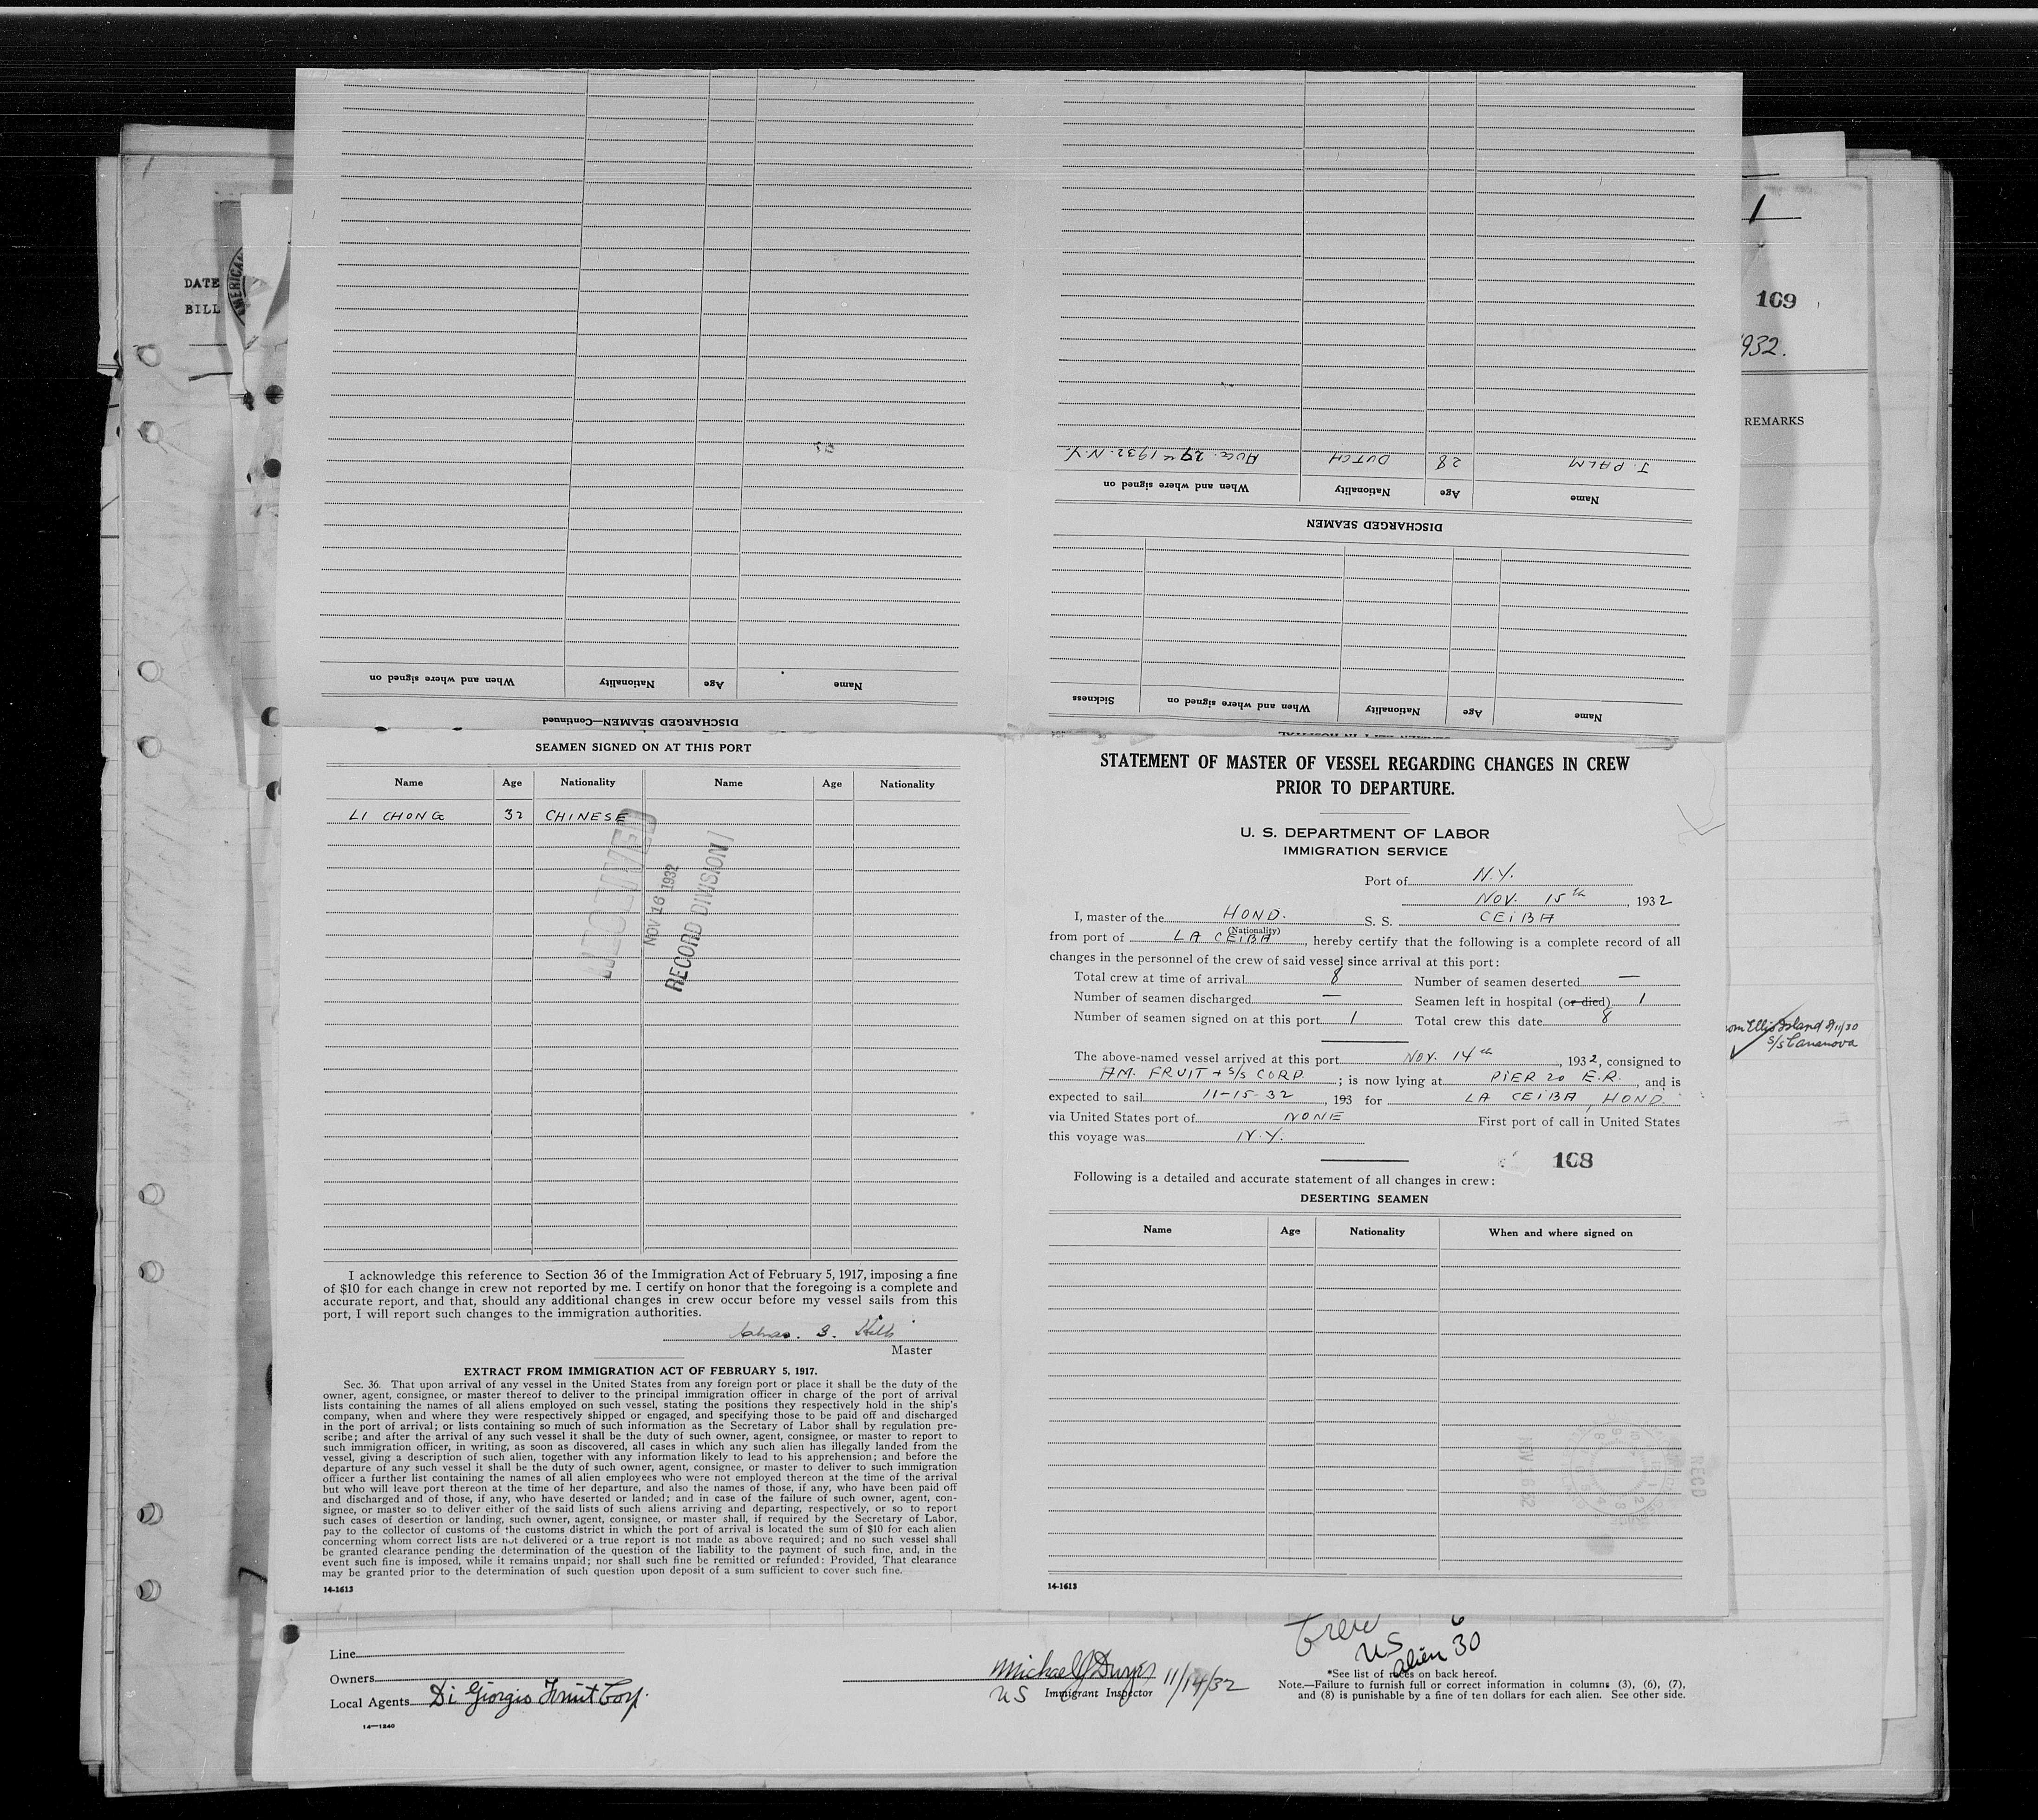 1
DATE
BILL
AMERICAN
109
1932.
REMARKS
J. PALM 28 DUTCH AUG. 29th 1932. N.Y.
Name Age Nationality When and where signed on
DISCHARGED SEAMEN
Name Age Nationality When and where signed on Sickness
Name Age Nationality When and where signed on
DISCHARGED SEAMEN—Continued
SEAMEN SIGNED ON AT THIS PORT
Name Age Nationality Name Age Nationality
LI CHONG 32 CHINESE
RECEIVED
NOV 16 1932
RECORD DIVISION
I acknowledge this reference to Section 36 of the Immigration Act of February 5, 1917, imposing a fine
of $10 for each change in crew not reported by me. I certify on honor that the foregoing is a complete and
accurate report, and that, should any additional changes in crew occur before my vessel sails from this
port, I will report such changes to the immigration authorities.
Master
EXTRACT FROM IMMIGRATION ACT OF FEBRUARY 5, 1917.
Sec. 36. That upon arrival of any vessel in the United States from any foreign port or place it shall be the duty of the
owner, agent, consignee, or master thereof to deliver to the principal immigration officer in charge of the port of arrival
lists containing the names of all aliens employed on such vessel, stating the positions they respectively hold in the ship's
company, when and where they were respectively shipped or engaged, and specifying those to be paid off and discharged
in the port of arrival; or lists containing so much of such information as the Secretary of Labor shall by regulation pre-
scribe; and after the arrival of any such vessel it shall be the duty of such owner, agent, consignee, or master to report to
such immigration officer, in writing, as soon as discovered, all cases in which any such alien has illegally landed from the
vessel, giving a description of such alien, together with any information likely to lead to his apprehension; and before the
departure of any such vessel it shall be the duty of such owner, agent, consignee, or master to deliver to such immigration
officer a further list containing the names of all alien employees who were not employed thereon at the time of the arrival
but who will leave port thereon at the time of her departure, and also the names of those, if any, who have been paid off
and discharged and of those, if any, who have deserted or landed; and in case of the failure of such owner, agent, con-
signee, or master so to deliver either of the said lists of such aliens arriving and departing, respectively, or so to report
such cases of desertion or landing, such owner, agent, consignee, or master shall, if required by the Secretary of Labor,
pay to the collector of customs of the customs district in which the port of arrival is located the sum of $10 for each alien
concerning whom correct lists are not delivered or a true report is not made as above required; and no such vessel shall
be granted clearance pending the determination of the question of the liability to the payment of such fine, and, in the
event such fine is imposed, while it remains unpaid; nor shall such fine be remitted or refunded: Provided, That clearance
may be granted prior to the determination of such question upon deposit of a sum sufficient to cover such fine.
14-1613
STATEMENT OF MASTER OF VESSEL REGARDING CHANGES IN CREW
PRIOR TO DEPARTURE.
U. S. DEPARTMENT OF LABOR
IMMIGRATION SERVICE
Port of N.Y.
NOV. 15th, 1932
I, master of the HOND. S. S. CEIBA
(Nationality)
from port of LA CEIBA, hereby certify that the following is a complete record of all
changes in the personnel of the crew of said vessel since arrival at this port:
Total crew at time of arrival 8 Number of seamen deserted —
Number of seamen discharged — Seamen left in hospital (or died) 1
Number of seamen signed on at this port 1 Total crew this date 8
The above-named vessel arrived at this port NOV. 14th, 1932, consigned to
AM. FRUIT + S/S CORP. ; is now lying at PIER 20 E.R., and is
expected to sail 11-15-32, 193 for LA CEIBA, HOND.
via United States port of NONE First port of call in United States
this voyage was N.Y.
108
Following is a detailed and accurate statement of all changes in crew:
DESERTING SEAMEN
Name Age Nationality When and where signed on
REC'D
14-1613
from Ellis Island 8/11/30
S/S Cananova
Line
Owners
Local Agents Di Giorgio Fruit Corp.
14—1240
Michael J Dwyer 11/14/32
US Immigrant Inspector
Crew 6
US
alien 30
*See list of races on back hereof.
Note.—Failure to furnish full or correct information in columns (3), (6), (7),
and (8) is punishable by a fine of ten dollars for each alien. See other side.